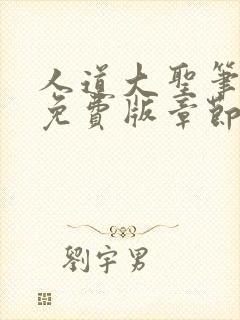 人道大聖筆
免費版章節
劉宇男